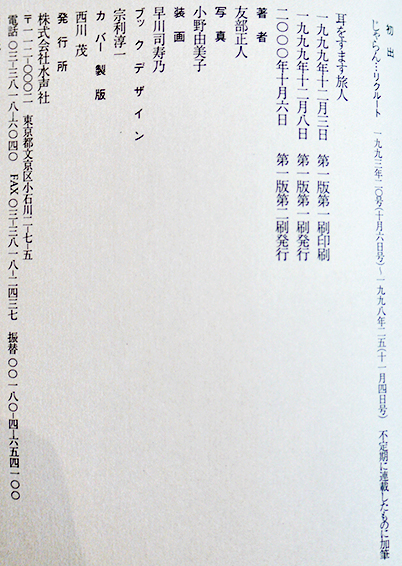 初出
じゃらん…リクルート　一九九三年二〇号(十月六日号)〜一九九八年二五(十一月四日号)　不定期に連載したものに加筆
耳をすます旅人
一九九九年十二月三日　第一版第一刷印刷
一九九九年十二月八日　第一版第一刷発行
二〇〇〇年十月六日　第一版第二刷発行
著者
友部正人
写真
小野由美子
装画
早川司寿乃
ブックデザイン
宗利淳一
カバー製版
西川 茂
発行所
株式会社水声社
〒一一二―〇〇〇二　東京都文京区小石川二―七―五
電話〇三―三八一八―六〇四〇　FAX〇三―三八一八―二四三七　振替〇〇一八〇―四―六五四一〇〇